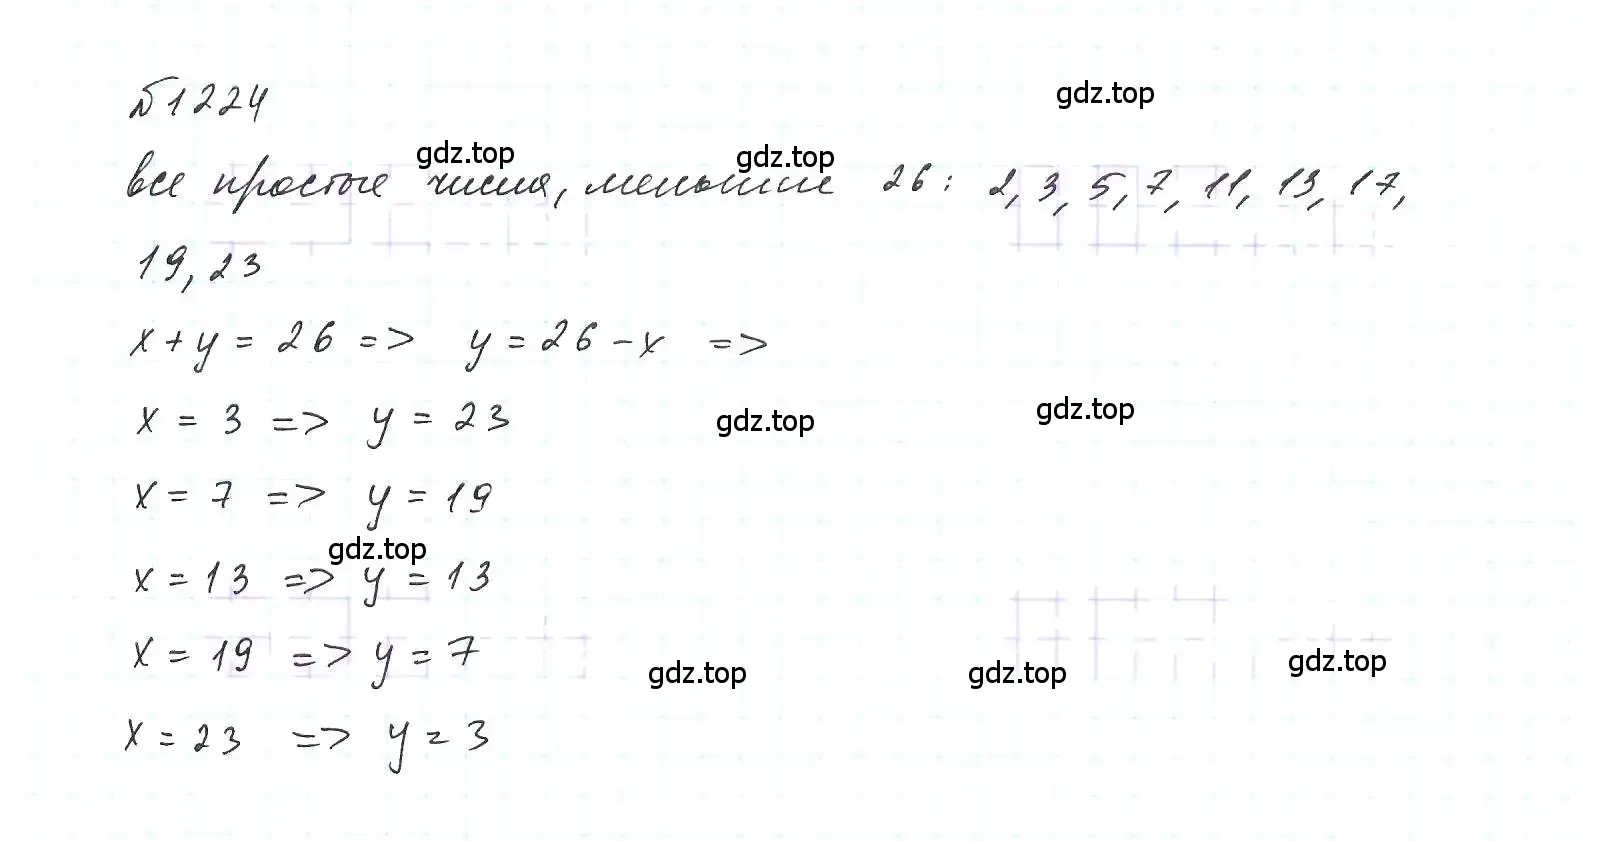 №1224
gdz.top
gdz.top
gdz.top
все простые числа, меньшие 26: 2, 3, 5, 7, 11, 13, 17,
19, 23
x + y = 26 => y = 26 - x =>
x = 3 => y = 23
gdz.top
gdz.top
x = 7 => y = 19
gdz.top
x = 13 => y = 13
x = 19 => y = 7
gdz.top
gdz.top
gdz.top
x = 23 => y = 3